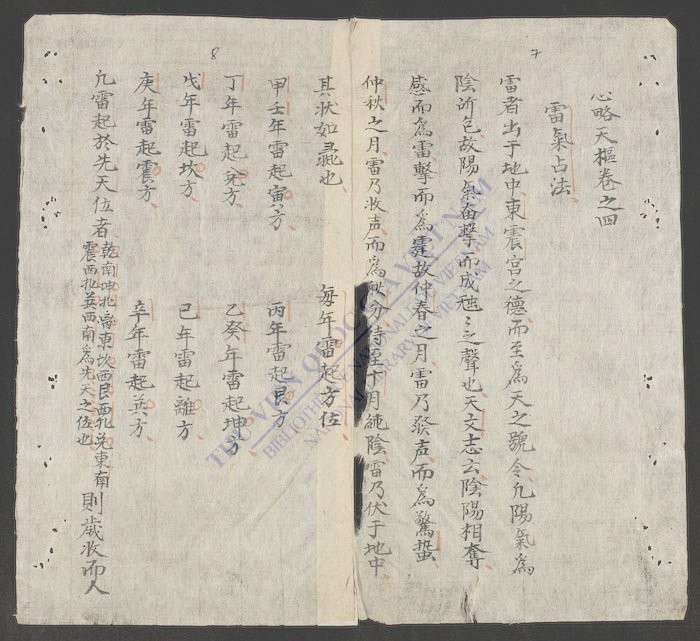 7
心略天樞卷之四
雷氣占法
雷者出于地中東震宮之德而至為天之號令凢陽氣為
陰所包故陽氣奮擊而成〻之聲也天文志云陰陽相奪
感而為雷擊而為霆故仲春之月雷乃發声而為驚蟄
仲秋之月雷乃收声而為秋分待至十月純陰雷乃伏于地中
8
其状如彘也 每年雷起方位
甲壬年雷起寅方 丙年雷起艮方
丁年雷起兌方 乙癸年雷起坤方
戊年雷起坎方 己年雷起離方
庚年雷起震方 辛年雷起巽方
凢雷起於先天位者
乾南坤北离東坎西艮西北兌東南
震西北巽西南為先天之位也
則歲收而人
THƯ VIỆN QUỐC GIA VIỆT NAM
BIBLIOTHÈQUE NATIONALE DU VIETNAM
NATIONAL LIBRARY OF VIETNAM